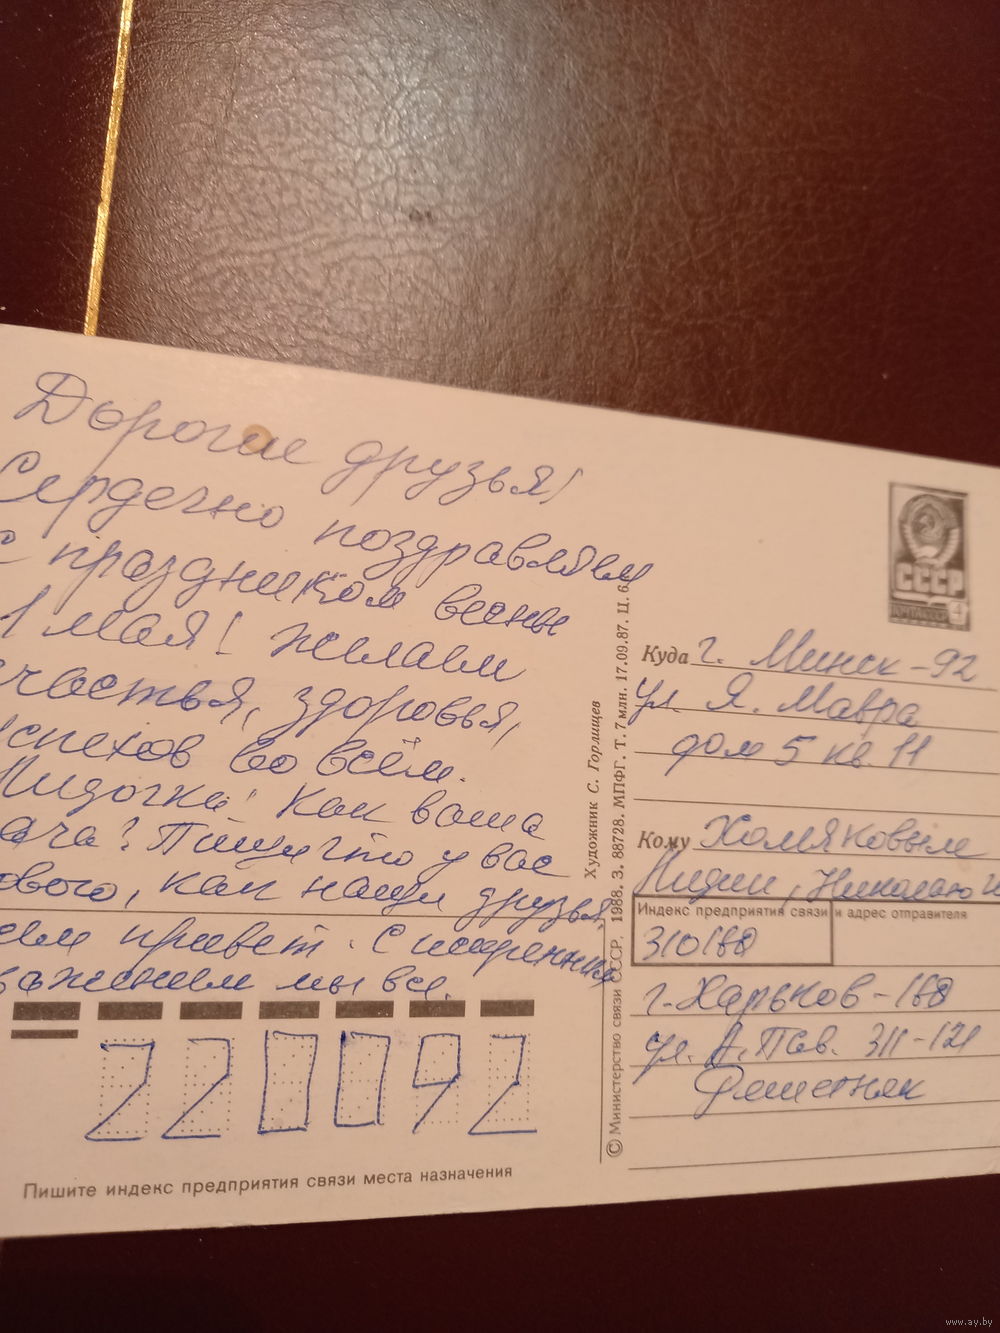 Дорогие друзья!
Сердечно поздравляем
с праздником весны
1 мая! Желаем
счастья, здоровья,
успехов во всём.
Лидочка! Как ваша
дача? Пишите что у вас
нового, как наши друзья,
всем привет. С искренним
уважением мы все.
220092
Пишите индекс предприятия связи места назначения
© Министерство связи СССР, 1988. З. 88728. МПФГ. Т. 7 млн. 17.09.87. Ц. 6
Художник С. Горлищев
СССР
ПОЧТА СССР 4
Куда г. Минск-92
ул. Я. Мавра
дом 5 кв. 11
Кому Хомяковым
Лидии, Николаю
Индекс предприятия связи и адрес отправителя
310168
г. Харьков-168
ул. А. Пав. 311-121
www.ay.by